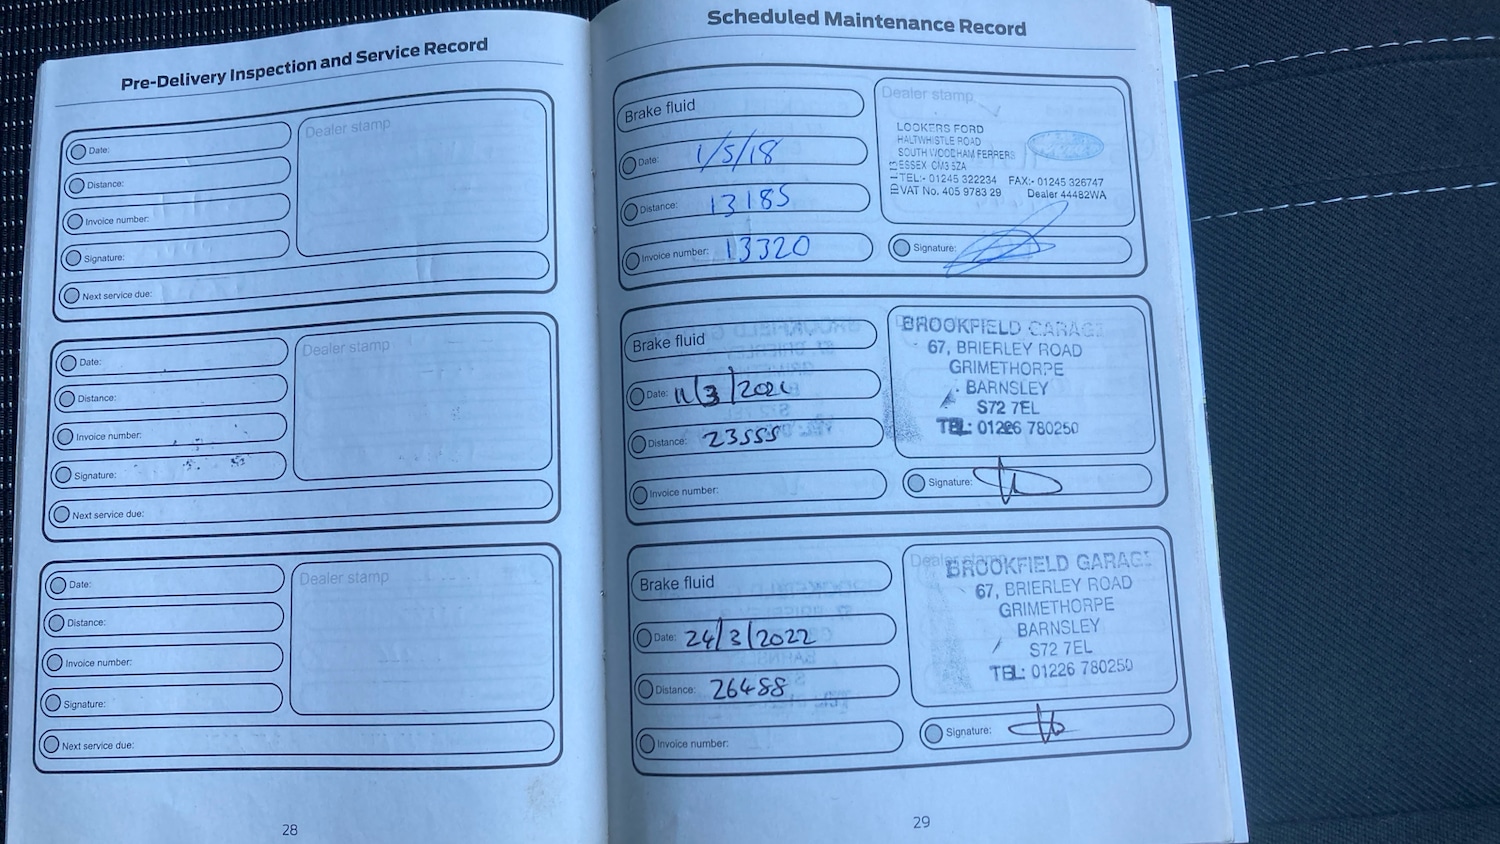 Pre-Delivery Inspection and Service Record
Date:
Distance:
Invoice number:
Signature:
Next service due:
Dealer stamp
Date:
Distance:
Invoice number:
Signature:
Next service due:
Dealer stamp
Date:
Distance:
Invoice number:
Signature:
Next service due:
Dealer stamp
28
Scheduled Maintenance Record
Brake fluid
Date: 1/5/18
Distance: 13185
Invoice number: 13320
Dealer stamp
LOOKERS FORD
HALTWHISTLE ROAD
SOUTH WOODHAM FERRERS
ESSEX CM3 5ZA
TEL:- 01245 322234 FAX:- 01245 326747
VAT No. 405 9783 29 Dealer 44482WA
Signature:
Brake fluid
Date: 11/3/2021
Distance: 23555
Invoice number:
BROOKFIELD GARAGE
67, BRIERLEY ROAD
GRIMETHORPE
BARNSLEY
S72 7EL
TEL: 01226 780250
Signature:
Brake fluid
Date: 24/3/2022
Distance: 26488
Invoice number:
Dealer stamp
BROOKFIELD GARAGE
67, BRIERLEY ROAD
GRIMETHORPE
BARNSLEY
S72 7EL
TEL: 01226 780250
Signature:
29